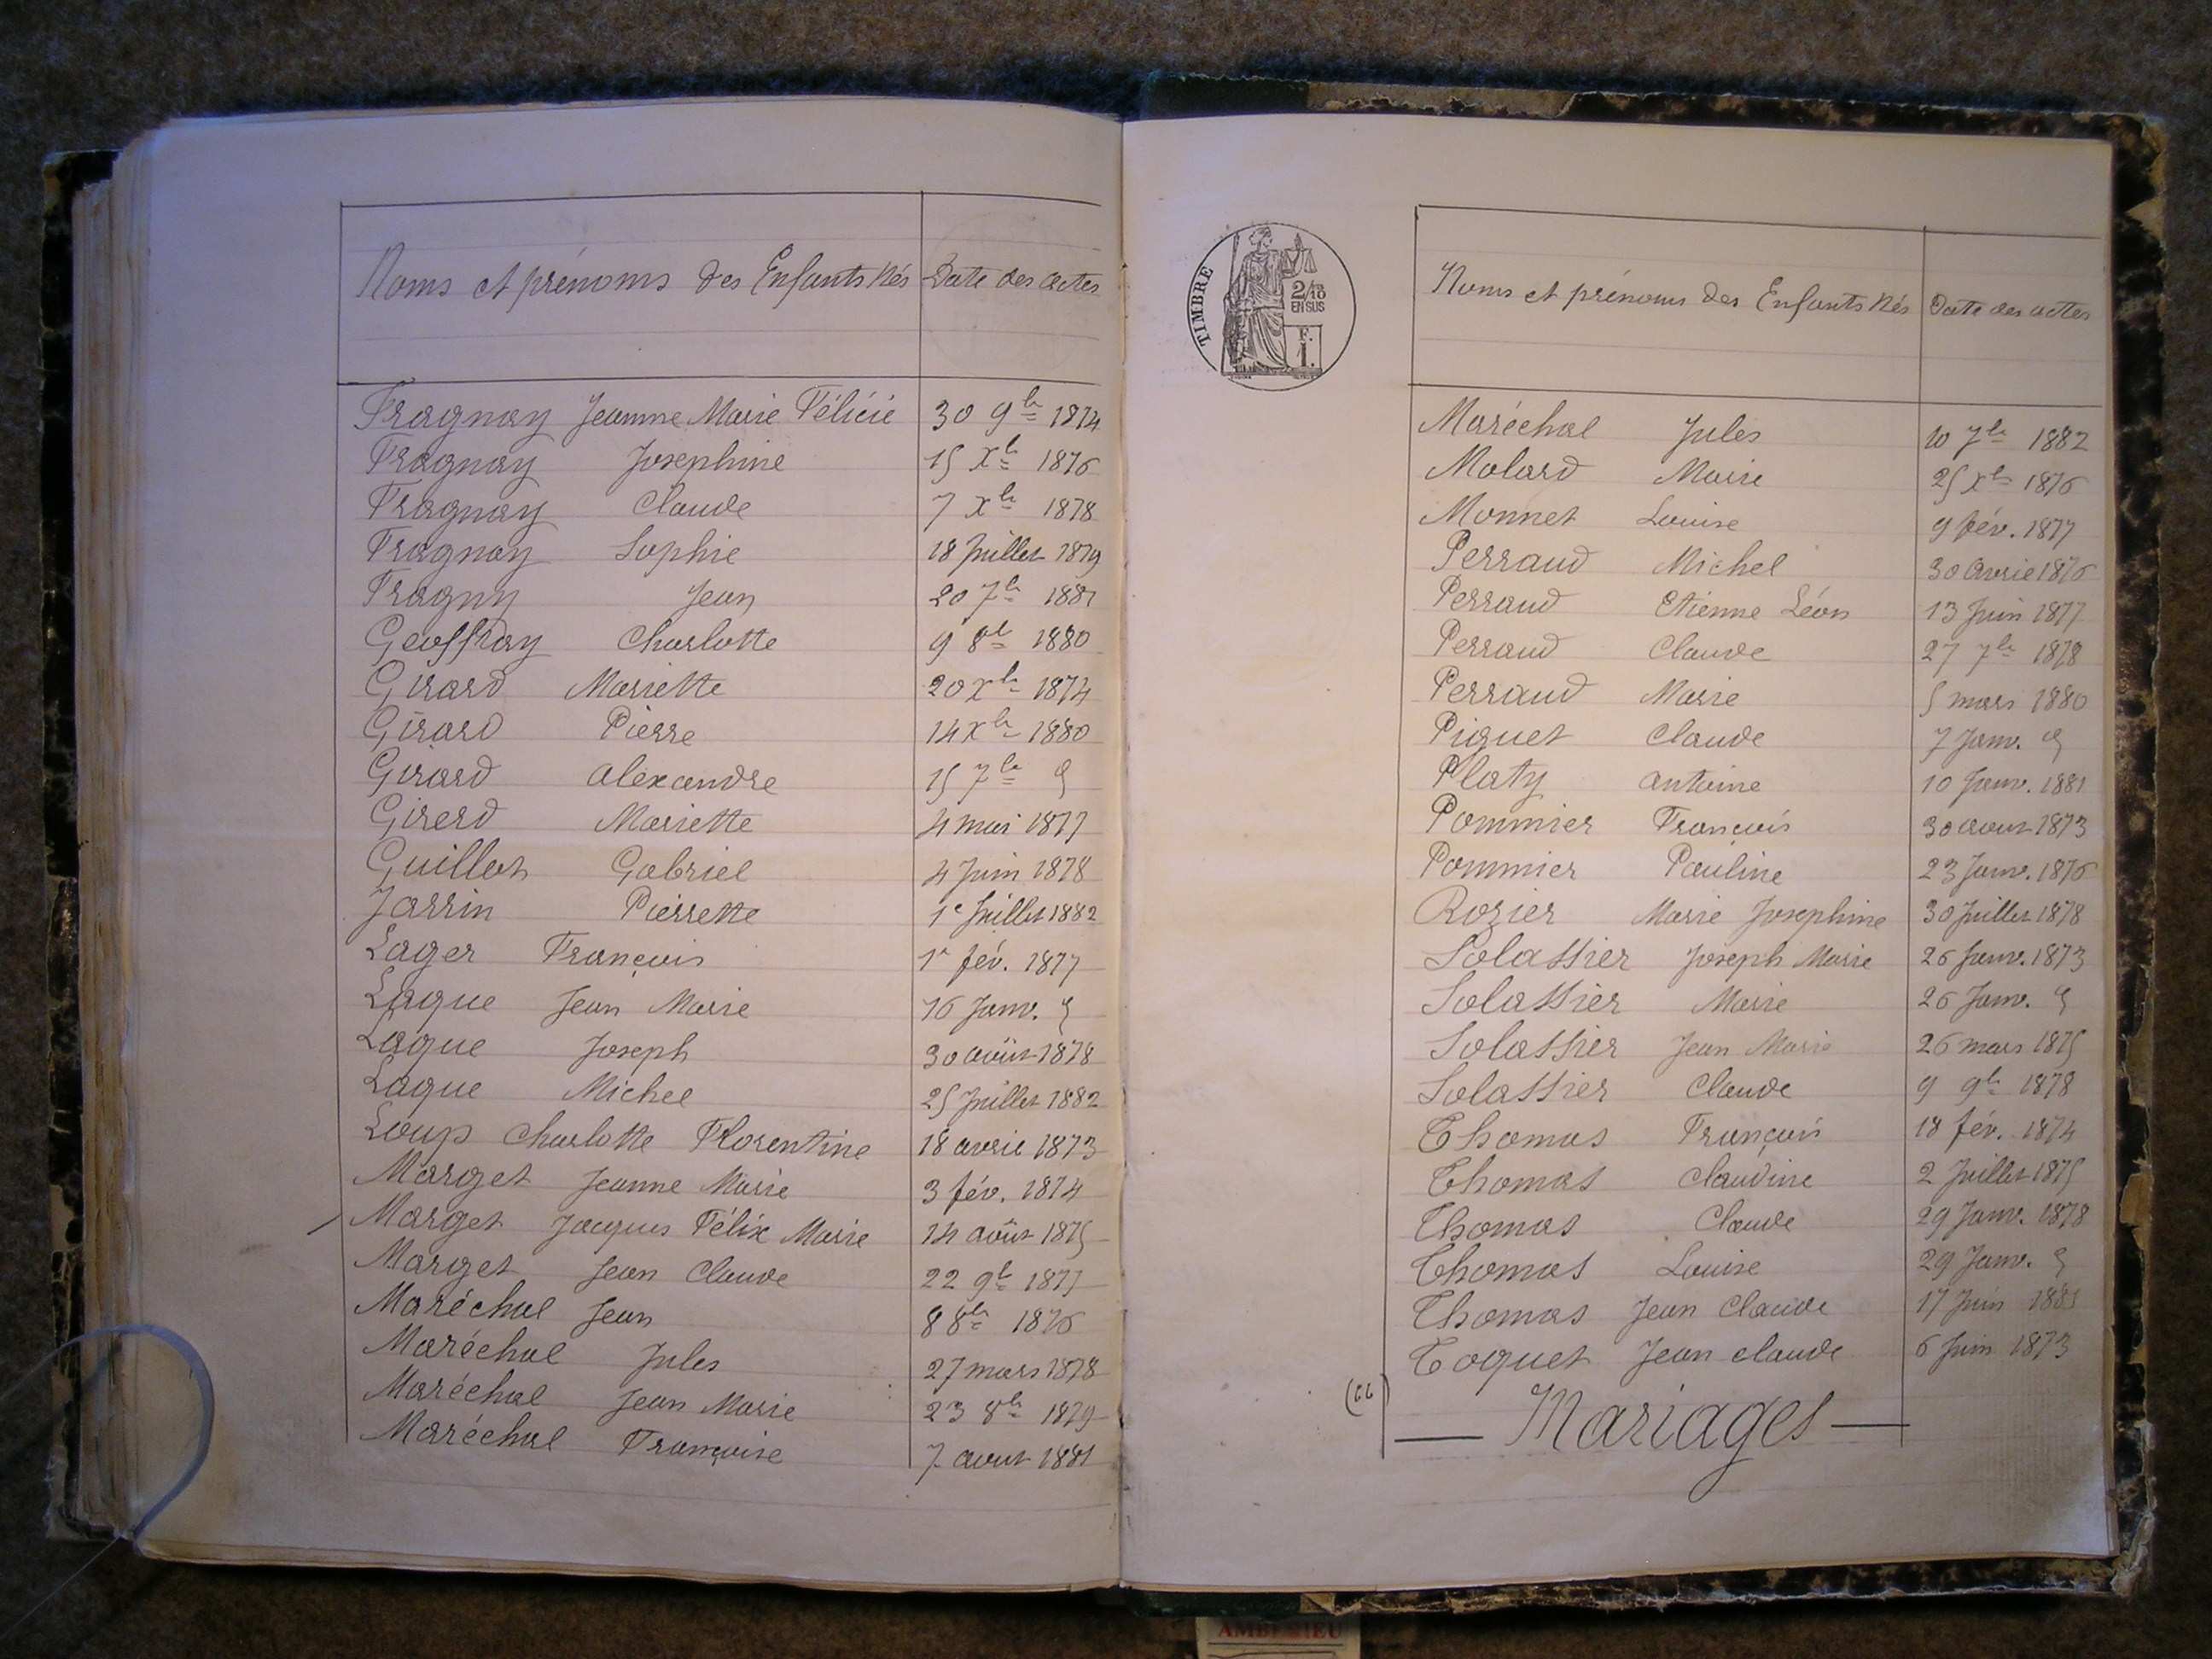 Noms et prénoms des Enfants Nés Date des actes
Fragnay Jeanne Marie Félicie 30 9bre 1874
Fragnay Josephine 15 Xbre 1876
Fragnay Claude 7 Xbre 1878
Fragnay Sophie 18 Juillet 1879
Fragny Jean 20 7bre 1881
Geoffray Charlotte 9 8bre 1880
Girard Mariette 20 Xbre 1874
Girard Pierre 14 Xbre 1880
Girard Alexandre 15 7bre
Girerd Mariette 4 mai 1877
Guillot Gabriel 4 Juin 1878
Jarrin Pierrette 1e Juillet 1882
Lager François 1r fév. 1877
Laque Jean Marie 16 Janv.
Laque Joseph 30 août 1878
Laque Michel 25 Juillet 1882
Loup Charlotte Florentine 18 avril 1873
Marget Jeanne Marie 3 fév. 1874
Marget Jacques Félix Marie 14 août 1875
Marget Jean Claude 22 9bre 1877
Maréchal Jean 8 8bre 1876
Maréchal Jules 27 mars 1878
Maréchal Jean Marie 23 8bre 1879
Maréchal Françoise 7 aout 1881
TIMBRE
2/10
EN SUS
F.
1.
Noms et prénoms des Enfants Nés Date des actes
Maréchal Jules 10 7bre 1882
Molard Marie 25 Xbre 1876
Monnet Louise 9 fév. 1877
Perraud Michel 30 Avril 1876
Perraud Etienne Léon 13 Juin 1877
Perraud Claude 27 7bre 1878
Perraud Marie 5 mars 1880
Piquet Claude 7 Janv.
Platy Antoine 10 Janv. 1881
Pommier François 30 aout 1873
Pommier Pauline 23 Janv. 1876
Rozier Marie Josephine 30 Juillet 1878
Solassier Joseph Marie 26 Janv. 1873
Solassier Marie 26 Janv.
Solassier Jean Marie 26 mars 1875
Solassier Claude 9 9bre 1878
Thomas François 18 fév. 1874
Thomas Claudine 2 Juillet 1875
Thomas Claude 29 Janv. 1878
Thomas Louise 29 Janv.
Thomas Jean Claude 17 Juin
Toquet Jean Claude 6 Juin 1873
— Mariages —